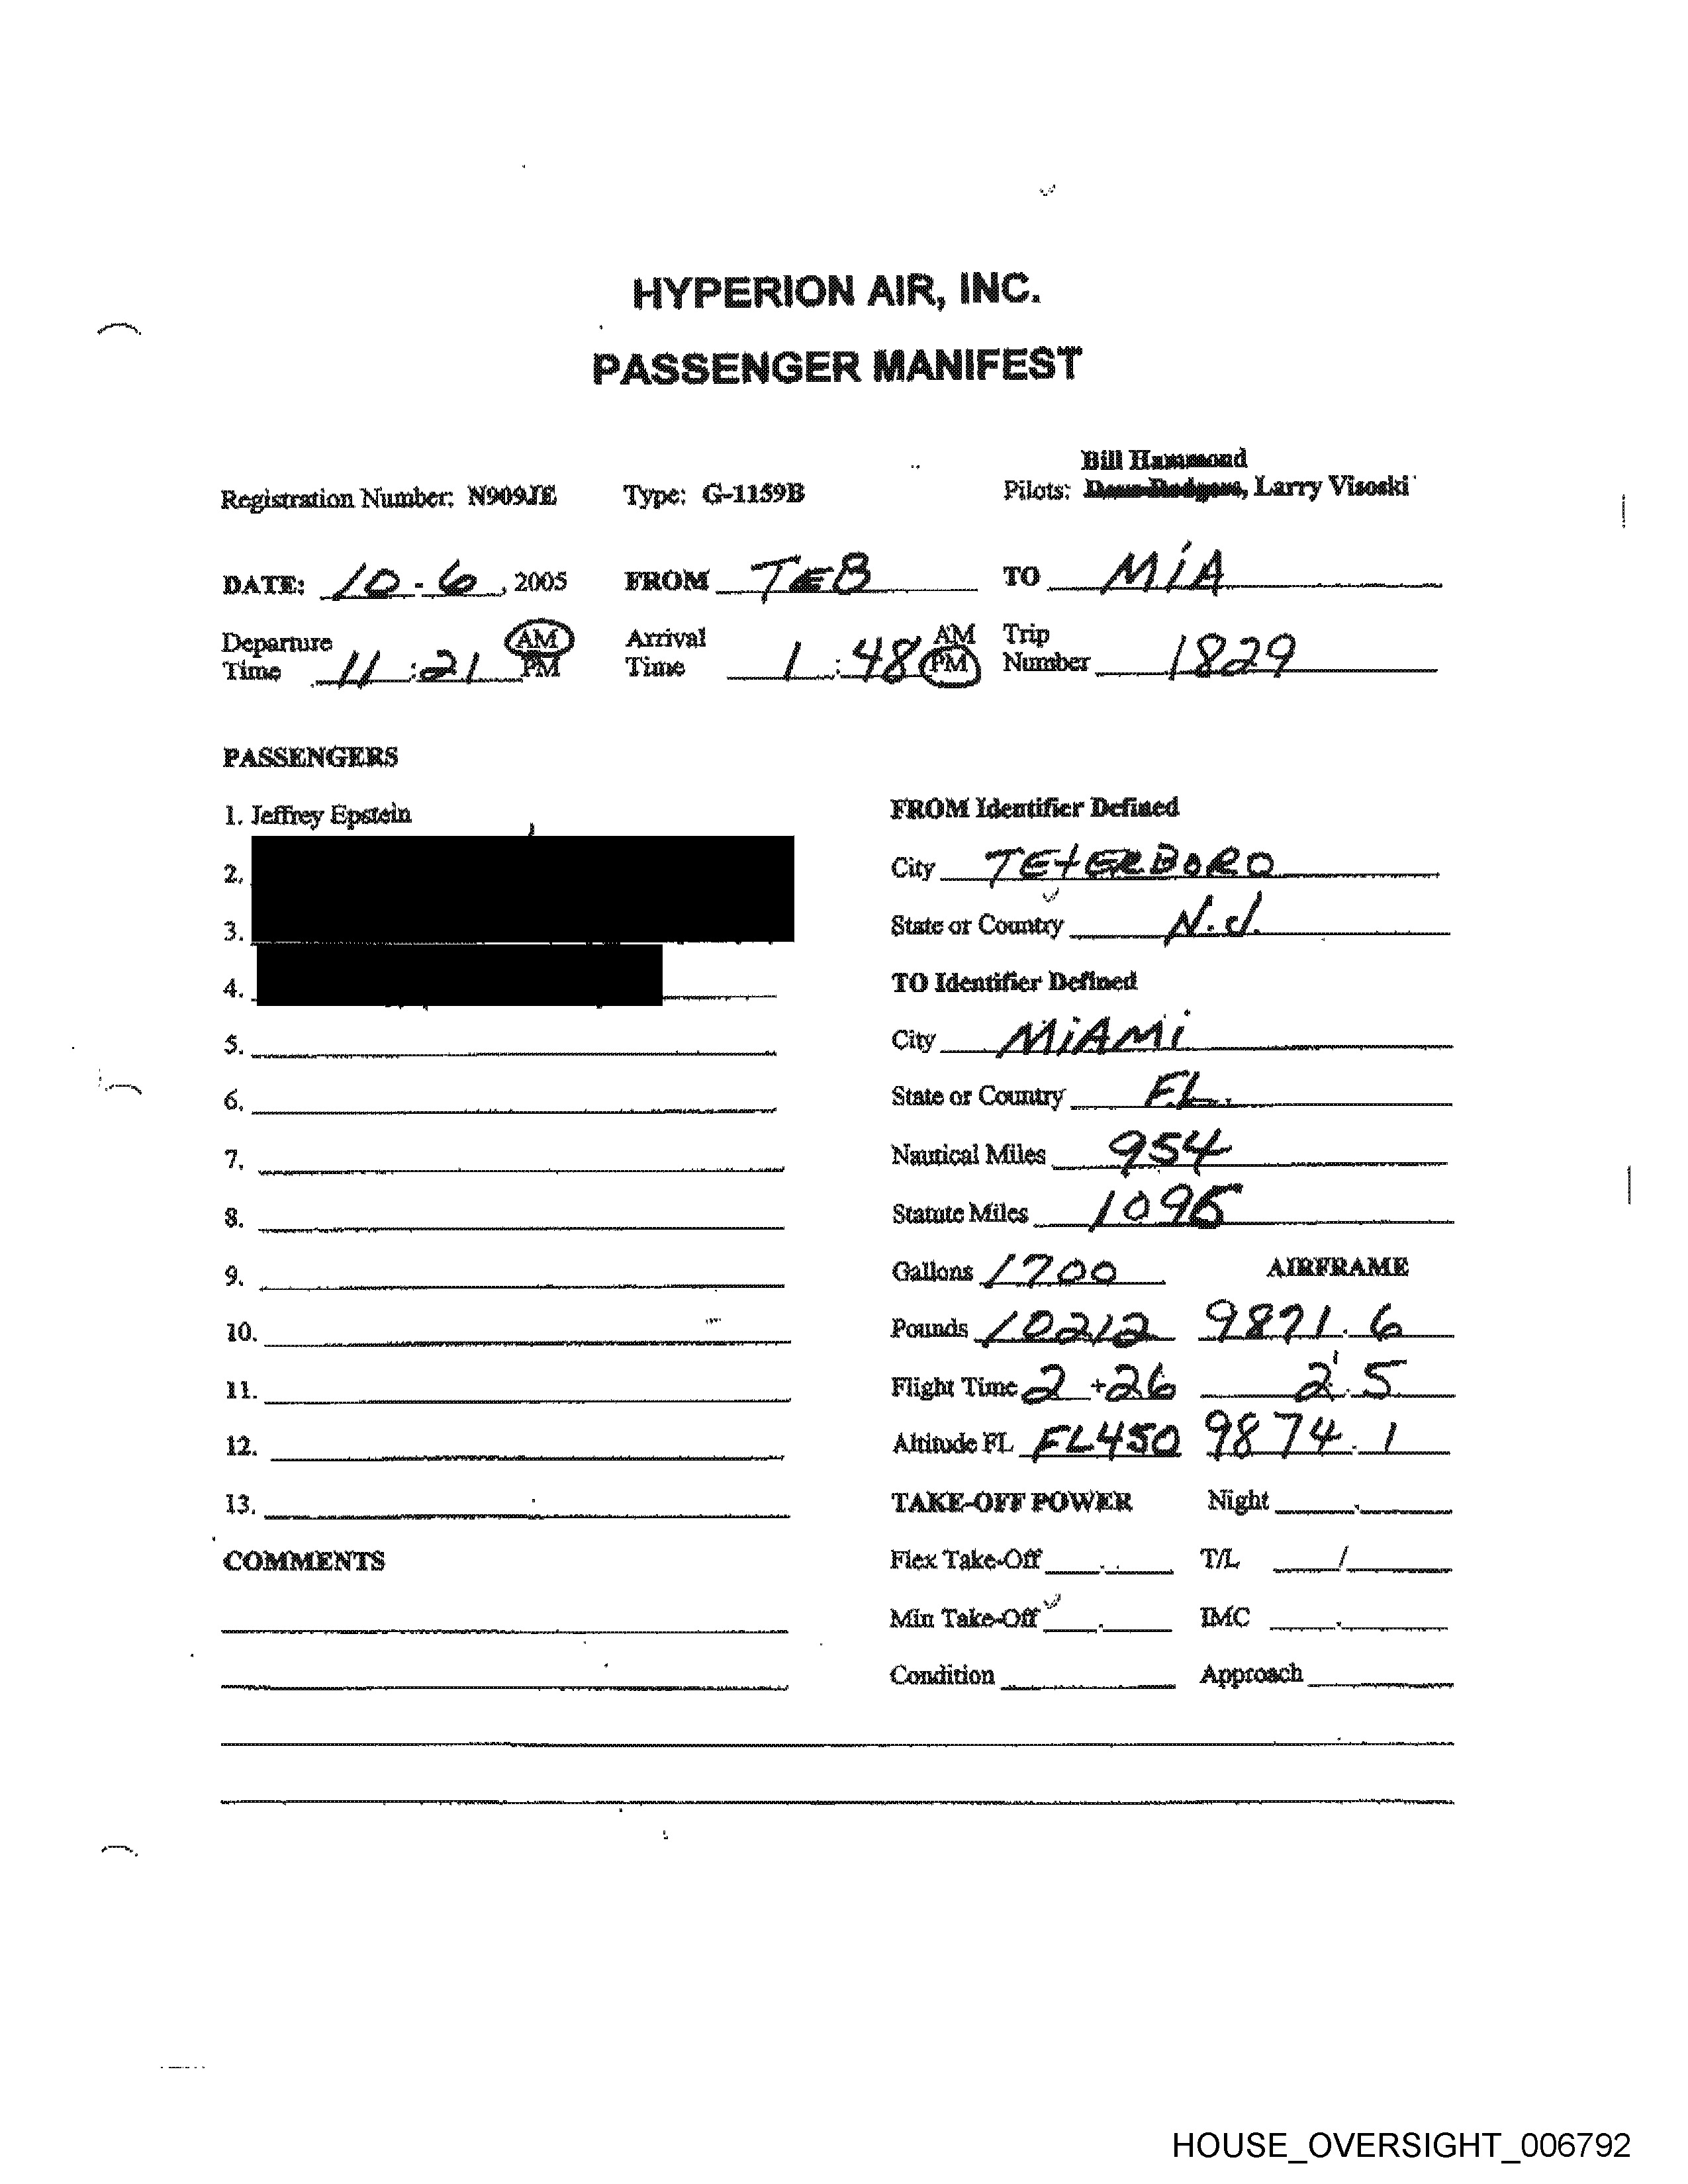 HYPERION AIR, INC.
PASSENGER MANIFEST
Bill Hammond
Registration Number: N909JE Type: G-1159B Pilots: Larry Visoski
DATE: 10-6, 2005 FROM TEB TO MiA
Departure Time 11:21 AM PM Arrival Time 1:48 AM PM Trip Number 1829
PASSENGERS
1. Jeffrey Epstein
2.
3.
4.
5.
6.
7.
8.
9.
10.
11.
12.
13.
COMMENTS
FROM Identifier Defined
City TETERBORO
State or Country N.J.
TO Identifier Defined
City MiAMi
State or Country FL.
Nautical Miles 954
Statute Miles
Gallons 1700 AIRFRAME
Pounds 10212 9871.6
Flight Time 2+26 2.5
Altitude FL FL450 9874.1
TAKE-OFF POWER Night
Flex Take-Off T/L /
Min Take-Off IMC
Condition Approach
HOUSE_OVERSIGHT_006792